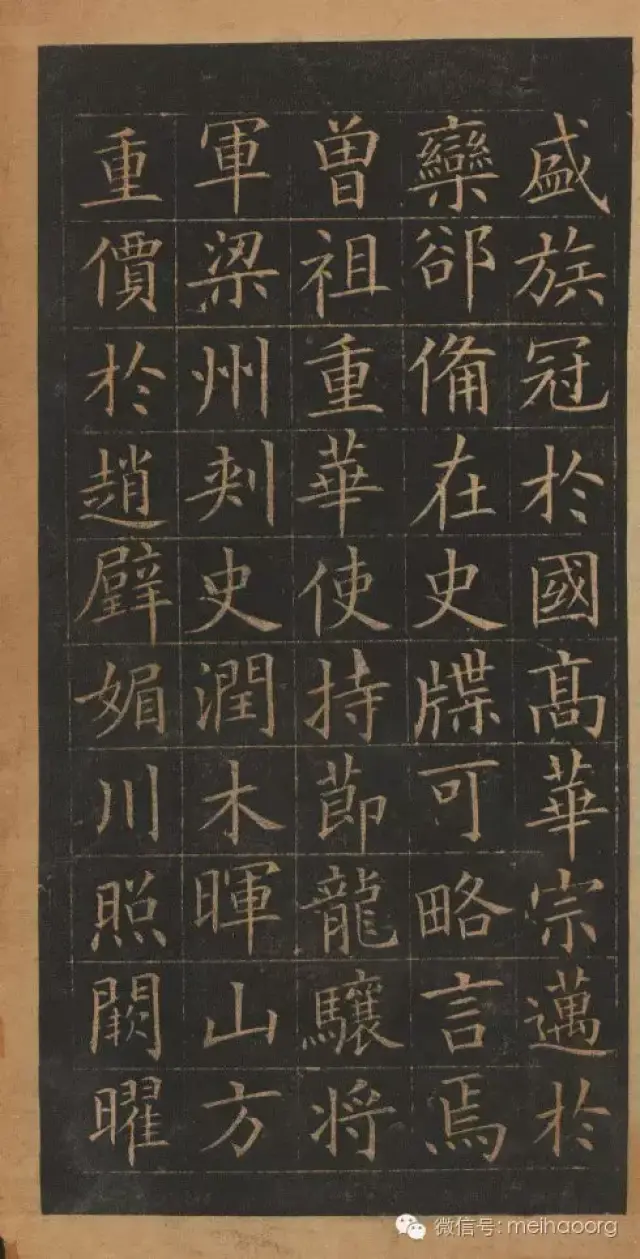 盛族冠於國高華宗邁於
欒郤備在史牒可略言焉
曾祖重華使持節龍驤將
軍梁州刺史潤木暉山方
重價於趙璧媚川照闕曜
微信号: meihaoorg